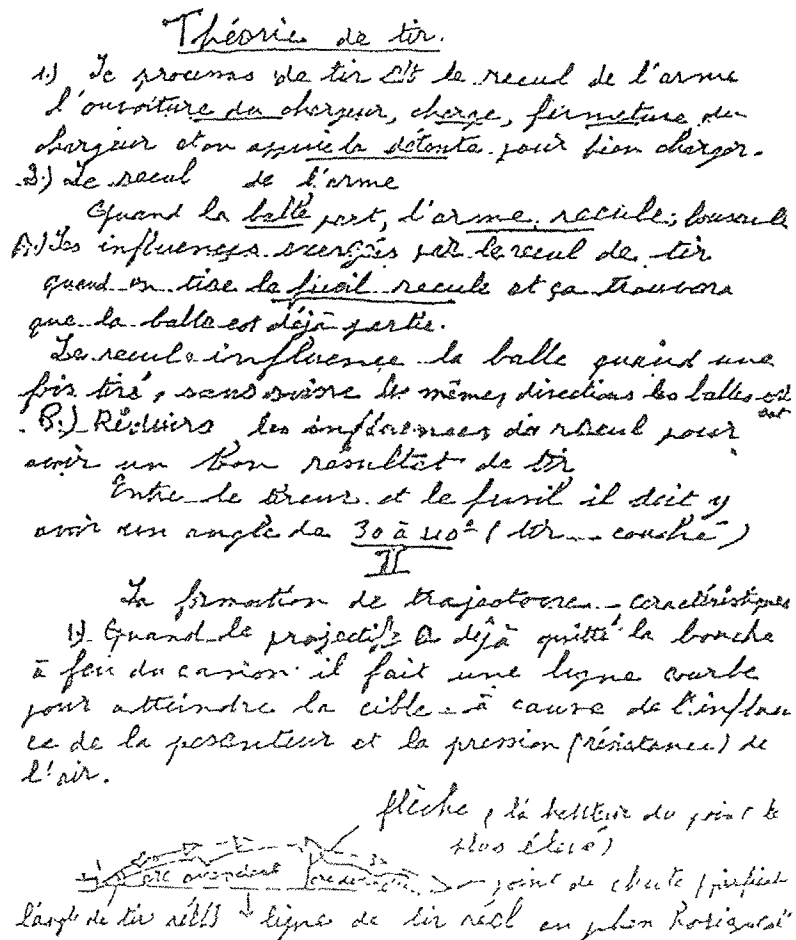 Théorie de tir.
1.) Le processus de tir est le recul de l'arme
l'ouverture du chargeur, charge, fermeture du
chargeur et on appuie la détente pour bien charger.
2.) Le recul de l'arme
Quand la balle part, l'arme recule;
A.) Les influences exergés par le recul de tir
quand on tire le fusil recule et ça trouvera
que la balle est déjà partie.
Le recule influence la balle quand une
fois tiré, sans suivre les mêmes directions les balles
B.) Réduire les influences du recul pour
avoir un bon résultat de tir
Entre le tireur et le fusil il doit y
avoir un angle de 30 à 40° (tir couché)
II
La formation de trajectoire - caractéristiques
1) Quand le projectile a déjà quitté la bouche
à feu du canon il fait une ligne courbe
pour atteindre la cible - à cause de l'influen
ce de la pesenteur et la pression (résistance) de
l'air.
flèche, (la hauteur du point le
plus élevé)
arc ascendant point de chute
l'angle de tir réel ligne de tir réel en plan